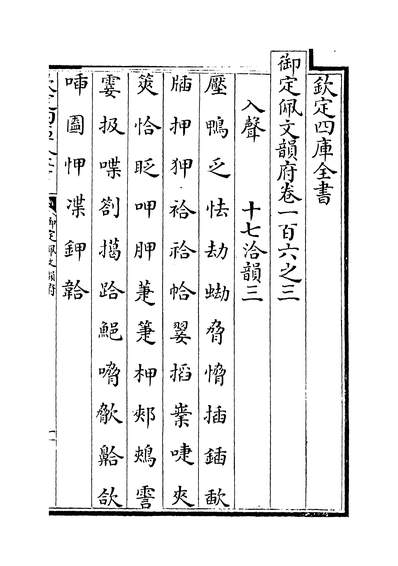 欽定四庫全書
御定佩文韻府卷一百六之三
入聲　十七洽韻三
壓鴨乏怯劫蜐脅愶插鍤歃
牐押狎袷祫帢翣搯業啑夾
筴恰眨呷胛萐箑柙郟鵊霅
霎扱喋劄擖跲䱟嗋歙鼛欱
喢圔㤉渫鉀韐
御定佩文韻府